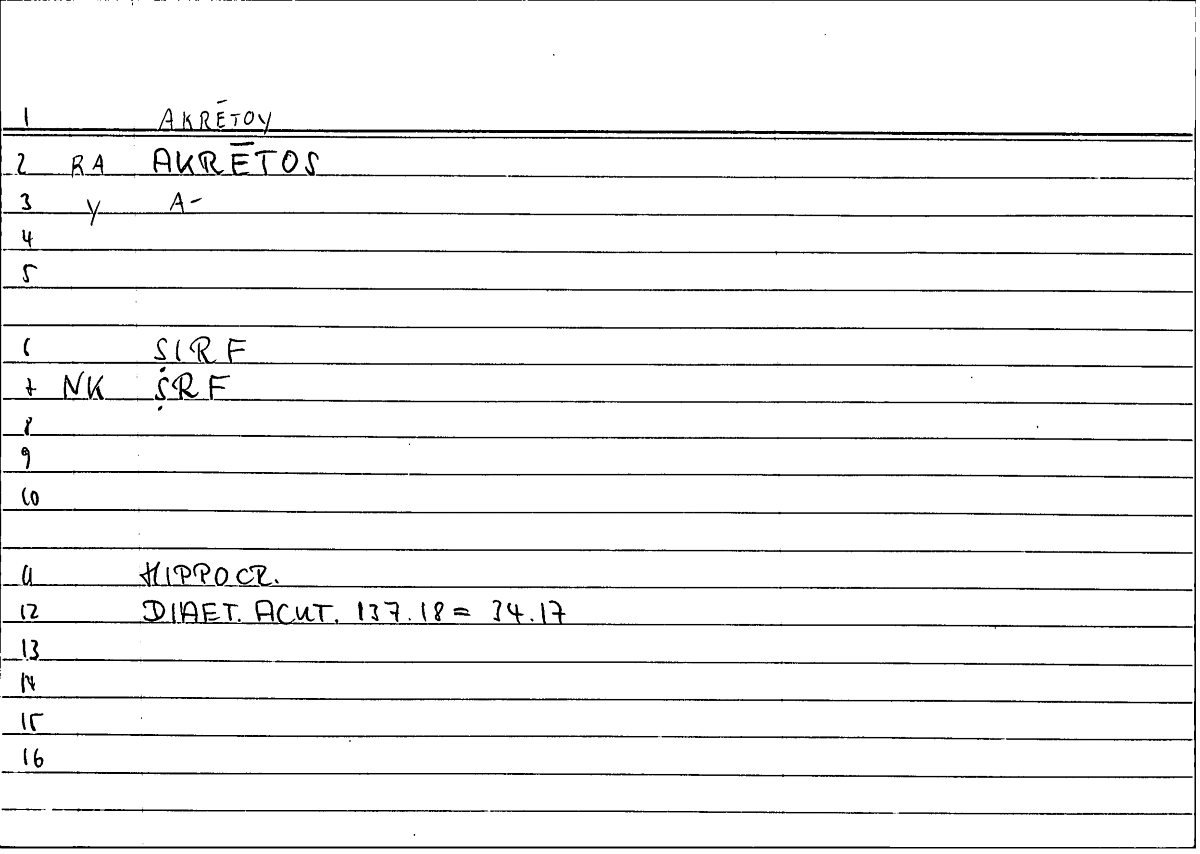 1 AKRĒTOY
2 RA AKRĒTOS
3 Y A-
4
5
6 ṢIRF
7 NK ṢRF
8
9
10
11 HIPPOCR.
12 DIAET. ACUT. 137.18 = 34.17
13
14
15
16